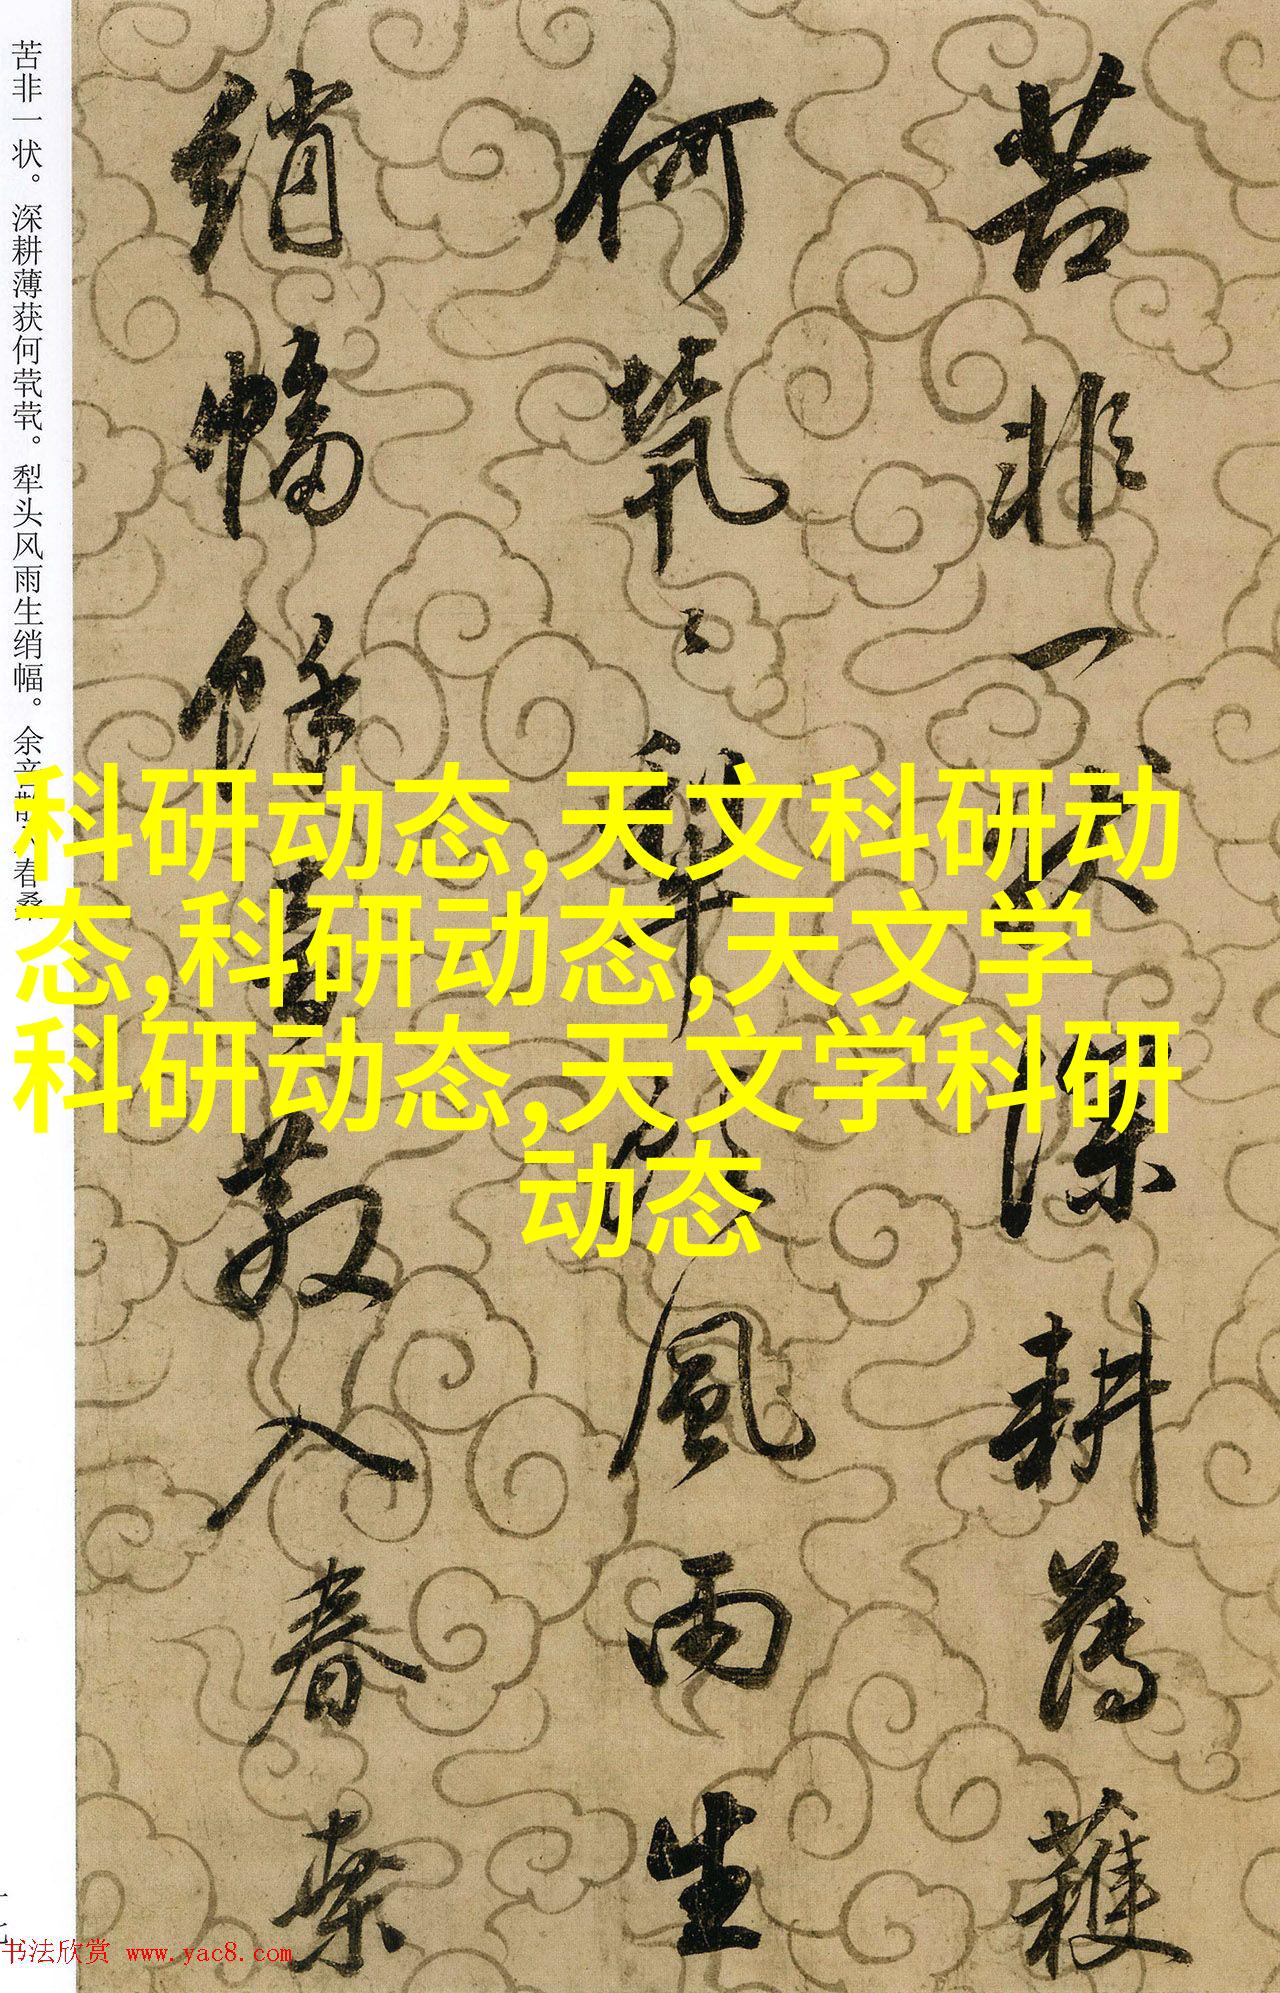 苦非一状深耕薄获
何茕〻犁头风雨生
绡幅馀音散入春桑
苦非一状。深耕薄获何茕茕。犁头风雨生绡幅。余音散入春桑
科研动态,天文科研动
态,科研动态,天文学
科研动态,天文学科研
动态
书法欣赏 www.yac8.com